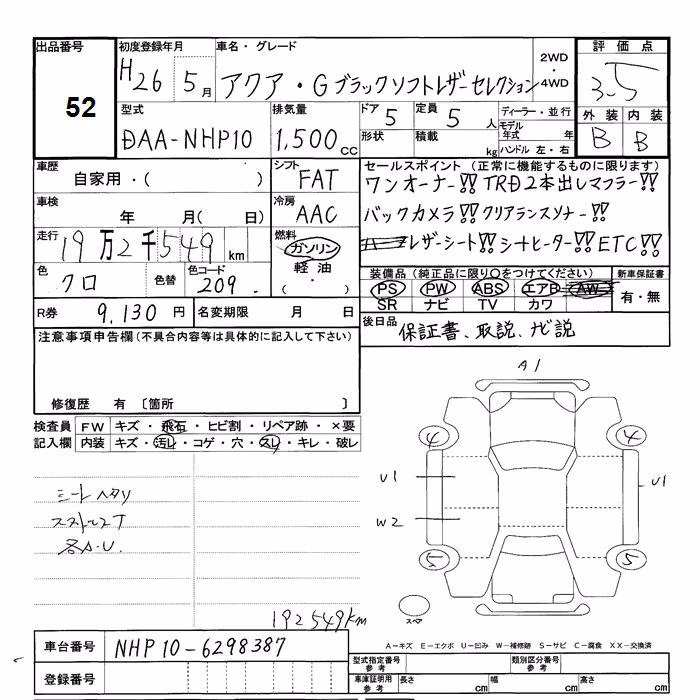 出品番号 初度登録年月 車名・グレード 2WD・4WD 評価点
52 H26 5月 アクア・Gブラックソフトレザーセレクション 3.5
型式 排気量 ドア 5 定員 5人 ディーラー・並行 外装 内装
DAA-NHP10 1,500cc 形状 積載 kg モデル年式 年 ハンドル 左・右 B B
車歴 シフト セールスポイント (正常に機能するものに限ります)
自家用・( ) FAT ワンオーナー!! TRD2本出しマフラー!!
車検 冷房 バックカメラ!! クリアランスソナー!!
年 月(日) AAC レザーシート!! シートヒーター!! ETC!!
走行 19万2千549km 燃料 ガソリン・軽油・
装備品 (純正品に限り○をつけてください) 新車保証書
色 クロ 色替 色コード 209. PS PW ABS エアB AW 有・無
SR ナビ TV カワ
R券 9,130円 名変期限 月 日 後日品 保証書、取説、ナビ説
注意事項申告欄(不具合内容等は具体的に記入して下さい)
修復歴 有 〔箇所 〕
検査員 FW キズ・飛石・ヒビ割・リペア跡・×要
記入欄 内装 キズ・汚レ・コゲ・穴・スレ・キレ・破レ
A1
4 4
U1 U1
W2
5 5
シートヘタリ
各A.U.
スペア
192549km
車台番号 NHP10-6298387
A－キズ E－エクボ U－凹み W－補修跡 S－サビ C－腐食 XX－交換済
登録番号
型式指定番号 参考 類別区分番号 参考
車庫証明用 参考 長さ cm 幅 cm 高さ cm